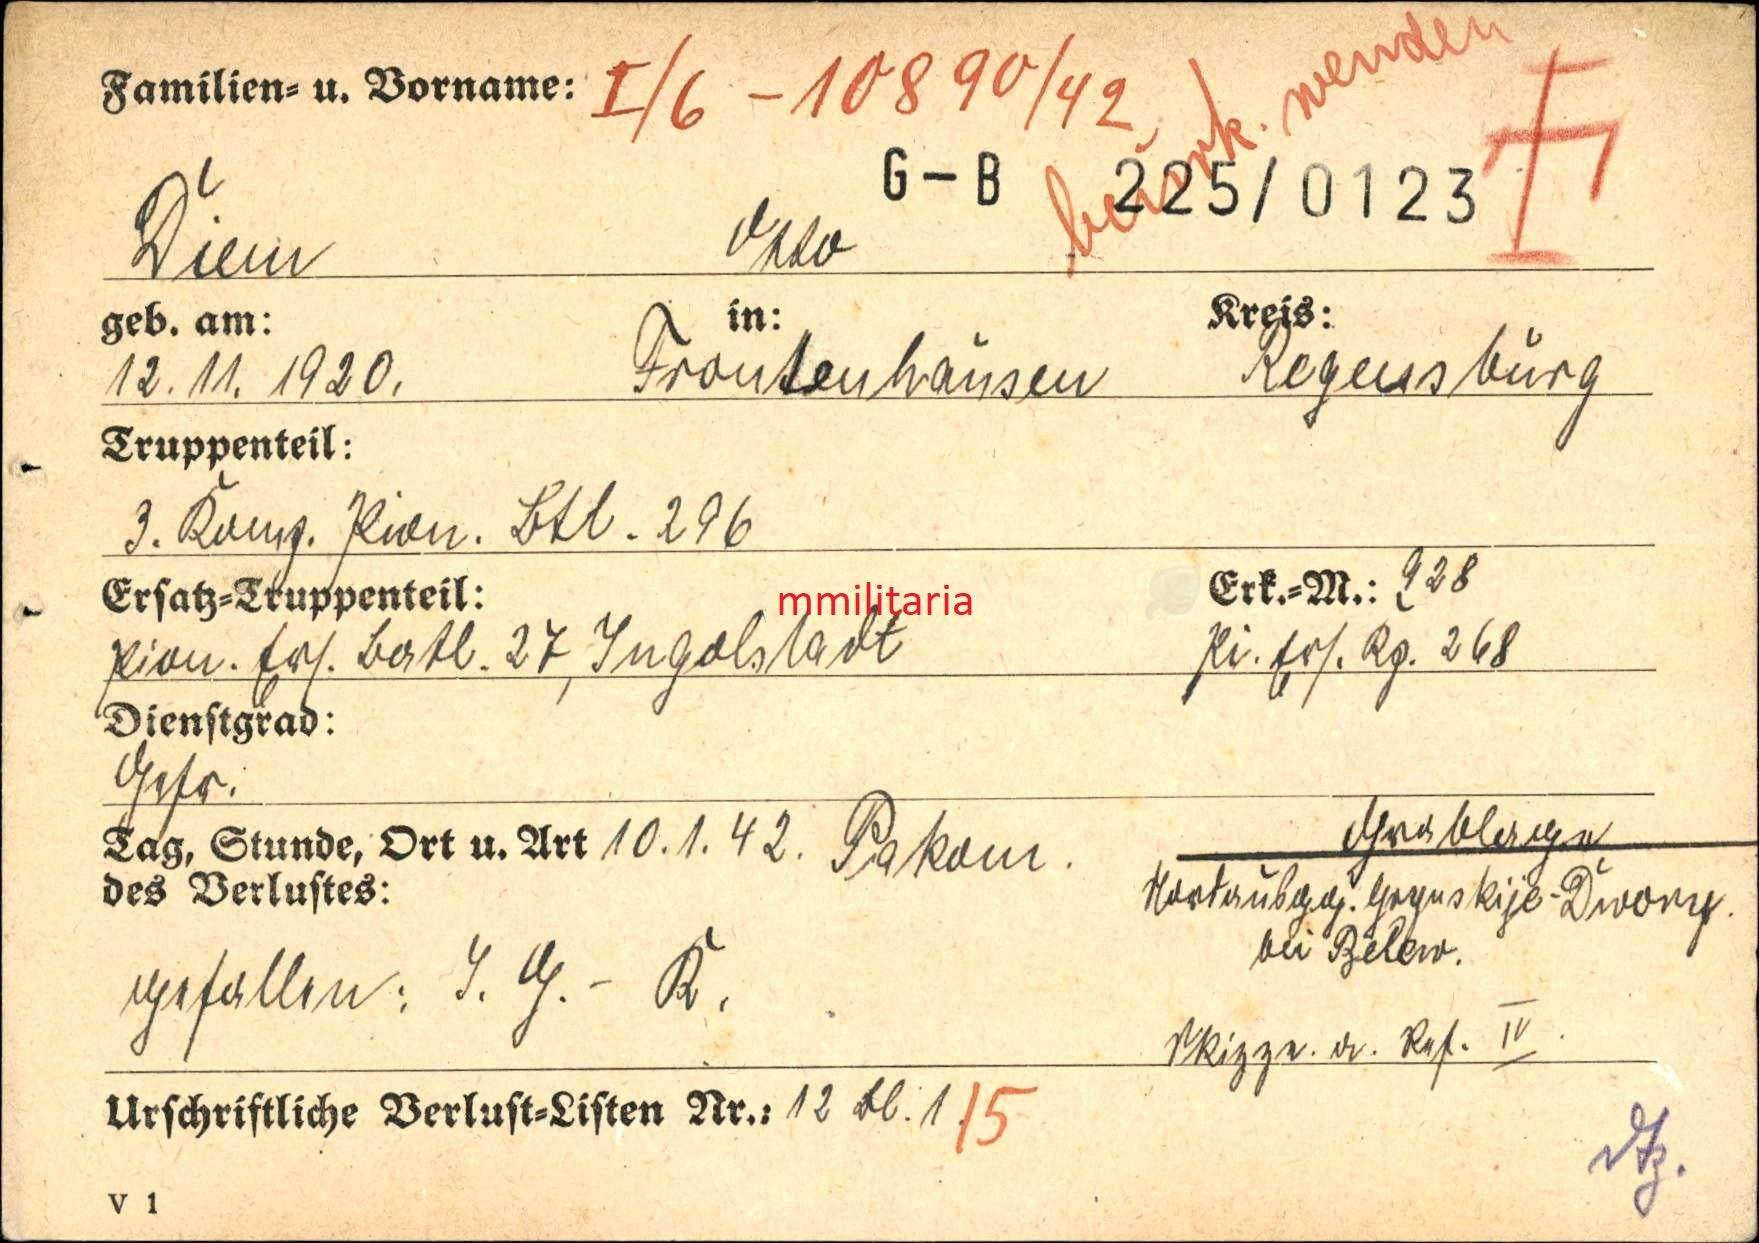 Familien- u. Vorname: I/6 - 10890/42
beurk. wenden
G-B 225/0123
Diem Otto
geb. am: in: Kreis:
12.11.1920. Frontenhausen Regensburg
Truppenteil:
3. Komp. Pion. Btl. 296
Ersatz-Truppenteil: Erk.-M.: 928
mmilitaria
Pion. Ers. Batl. 27, Ingolstadt Pi. Ers. Kp. 268
Dienstgrad:
Gefr.
Tag, Stunde, Ort u. Art 10.1.42. Pakom. Grablage
des Verlustes: Nordausgg. -Dwory.
bei Belew.
gefallen: I. G. - K.
Skizze. a. Ref. IV.
Urschriftliche Verlust-Listen Nr.: 12 Bl. 1/5
V 1